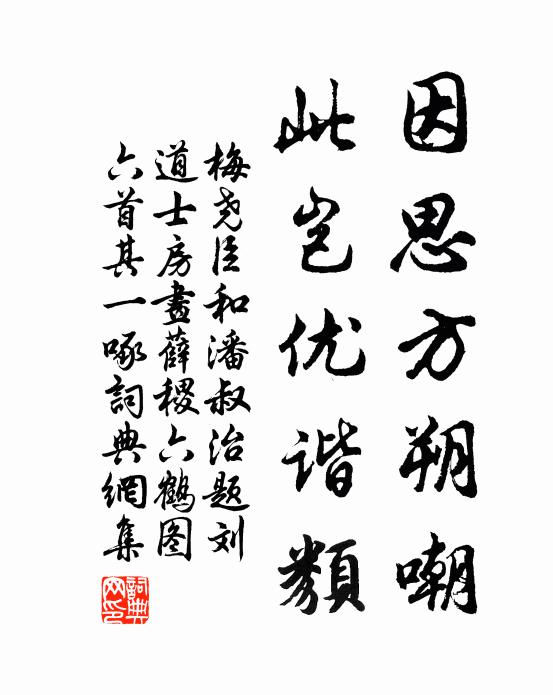 因思方朔嘲
此岂优谐类
梅尧臣和潘叔治题刘
道士房畫薛稷六鶴图
六首其一啄詞典網集
詞典
网印